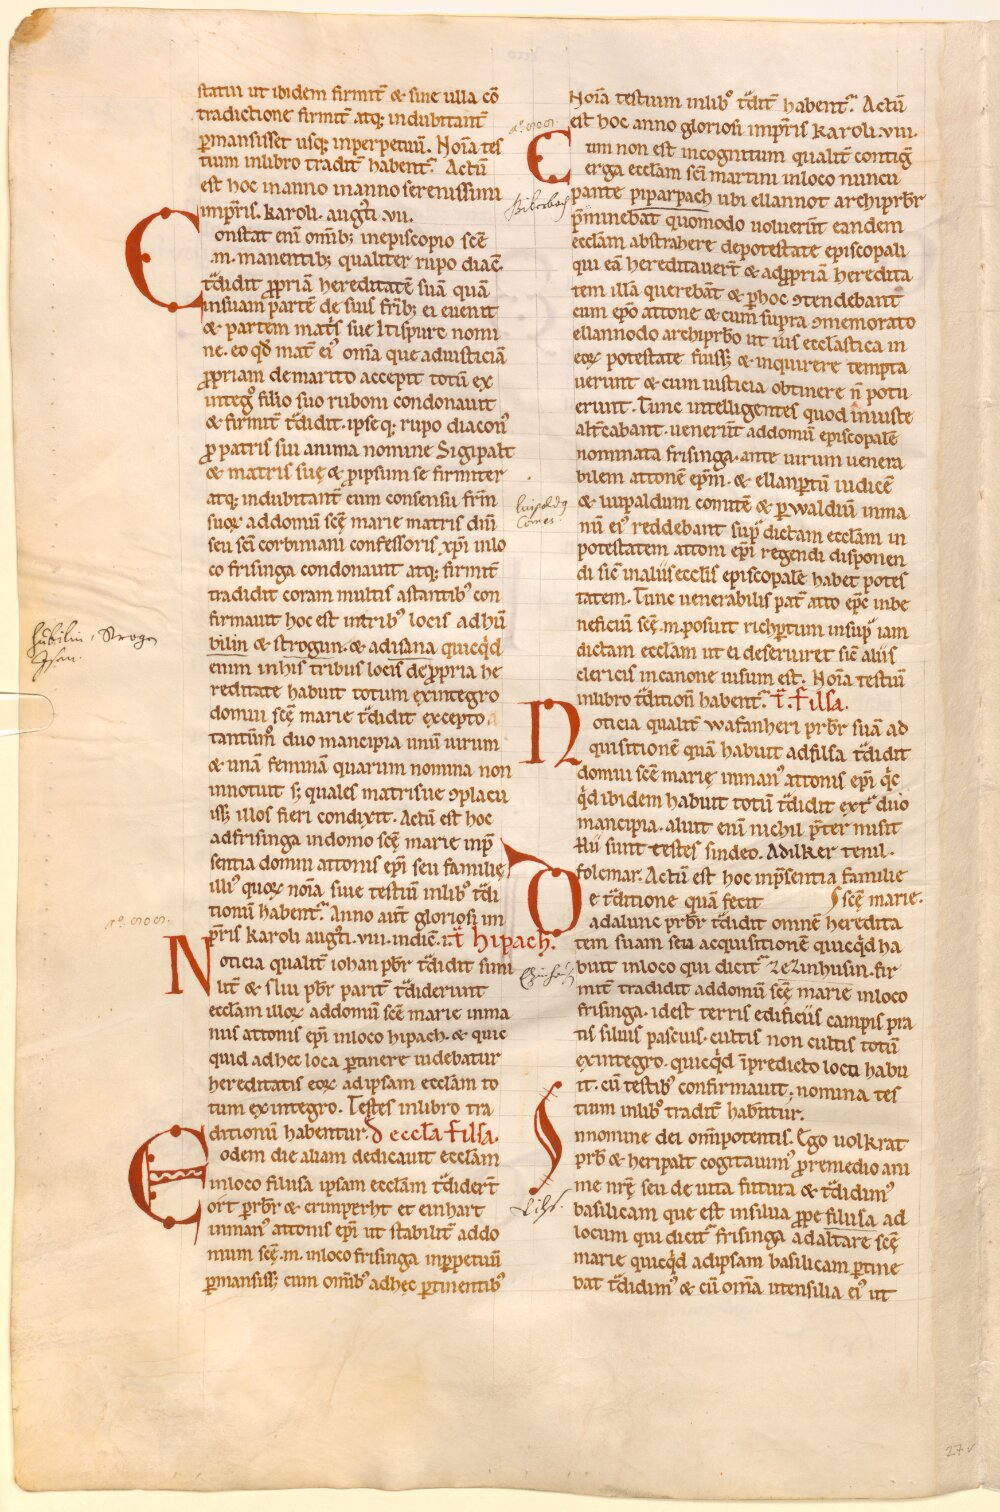 statui ut ibidem firmit̄ & sine ulla cō
tradictione firmit̄ atq; indubitant̄
ꝑmansisset usq; inperpetuū. Noīa tes
tium inlibro tradit̄ habent᷑. Actū
est hoc inanno inanno serenissimi
imp̄ris. karoli. augti. vii.
Constat enī om̄ib; inepiscopio scē
.m. manentib; qualiter rupo diac̄.
t̄didit ꝓpriā hereditatē suā quā
insuam partē de suis fr̄ib; ei euenit
& partem mat̄s sue ltispure nomi
ne. eo qd̄ mat̄ ei᷒ om̄a que adiusticiā
ꝓpriam demarito accepit totū ex
integ̊ filio suo ruboni condonauit
& firmit̄ t̄didit. ipseq; rupo diacon᷒
ꝓ patris sui anima nomine Sigipalt
& matris suę & ꝓ ipsum se firmiter
atq; indubitant̄ cum consensu fr̄m
suoꝝ addomū scę̄ marie matris dn̄i
seu sc̄i corbiniani confessoris xp̄i inlo
co frisinga condonauit atq; firmit̄
tradidit coram multis astantib᷒ con
firmauit hoc est intrib᷒ locis adhū
bilin & strogun. & adisana quicq̇d
enim inhis tribus locis deꝓpria he
reditate habuit totum exintegro
domui scę̄ marie t̄didit excepto
tantūm̊ duo mancipia unū uirum
& unā feminā quarum nomina non
innotuit s; quales matrisue ꝯplacu
iss; illos fieri condixit. Actū est hoc
adfrisinga indomo scę̄ marie inp̄
sentia domni attonis ep̄i seu familię
illi᷒ quoꝝ noīa siue testiū inlib᷒ t̄di
tionū habent᷑. Anno aut̄ gloriosi im
p̄ris karoli augti. viii. indic̄. i. t̄ hipach.
Noticia qualit̄ iohan pb̄r t̄didit simi
lit̄ & sliu pb̄r parit̄ t̄diderunt
eccłam illoꝝ addomū scē marie inma
nus attonis ep̄i inloco hipach. & quic
quid adhec loca ꝑtinere uidebatur
hereditatis eoꝝ adipsam eccłam to
tum exintegro. Testes inlibro tra
ditionū habentur. d̄ eccła filsa.
Eodem die aliam dedicauit eccłam
inloco filusa ipsam eccłam t̄didert̄
ort p̄rbr̄ & crimperht et einhart
inman᷒ attonis ep̄i ut stabilit̄ addo
mum scę̄ .m. inloco frisinga inꝑpetuū
ꝑmansiss; cum om̄ib᷒ adhęc ꝑtinentib᷒
Noīa testium inlib᷒ t̄dit̄ habent᷑. Actū
est hoc anno gloriosi imp̄ris karoli. viii.
Cum non est incognitum qualit̄ contig̊
erga eccłam sc̄i martini inloco nuncu
pante piparpach ubi ellannot archiprb̄r
p̄minebat quomodo uoluerūt eandem
eccłam abstrahere depotestate episcopali
qui eā hereditauert̄ & adꝓpriam heredita
tem illā querebāt & ꝑhoc ꝯtendebant
cum ep̄o attone & cum supra ꝯmemorato
ellannodo archiprb̄o ut iūs ecclastica in
eoꝝ potestate fuiss; & inquirere tempta
uerunt & cum iusticia obtinere n̄ potu
erunt. Tunc intelligentes quod iniuste
alt̄cabant. uenerūt addomū episcopalē
nominata frisinga. ante uirum uenera
bilem attonē ep̄m. & ellanꝑtū iudicē
& uupaldum comitē & ꝑ waldiū inma
nū ei᷒ reddebant sup᷑ dictam eccłam in
potestatem attoni ep̄i regendi disponen
di sic̄ inaliis eccłis episcopale habet potes
tatem. Tunc uenerabilis pat̄ atto ep̄c inbe
neficiū scę̄ .m. posuit richꝑtum insup᷑ iam
dictam eccłam ut ei deseruiret sic̄ aliis
clericis incanone uisum est. Noīa testiū
inlibro t̄dition̄ habent᷑. t̄. filsa.
Noticia qualit̄ wafanheri prb̄r suā ad
quisitionē quā habuit adfilsa t̄didit
domui scē marię inman᷒ attonis ep̄i q̇c
q̇d ibidem habuit totū t̄didit ext᷑ duo
mancipia. aliut enī nichil p̄ter misit
Hii sunt testes sindeo. Adilker tenil.
folcmar. Actū est hoc inp̄sentia familie
scę̄ marie.
De t̄ditione quā fecit
adalunc prb̄r t̄didit omnē heredita
tem suam seu acquisitionē quicq̇d ha
buit inloco qui dicit᷑ zezinhusin. fir
mit̄ tradidit addomū scę̄ marie inloco
frisinga. idest terris edificiis campis pra
tis siluis pascuis. cultis non cultis totū
exintegro. quicq̇d īpredicto loco habu
it. cū testib᷒ confirmauit; nomina tes
tium inlib᷒ tradit̄ habn̄tur.
Innomine dei om̄ipotentis. Ego uolkrat
prb̄ & heripalt cogitauim᷒ ꝓremedio ani
me nr̄ę seu de uita futura & t̄didim᷒
basilicam que est insilua ꝓpe filusa ad
locum qui dicit᷑ frisinga adaltare scę̄
marie quicq̇d adipsam basilicam ꝑtine
bat t̄didim᷒ & cū om̄a utensilia ei᷒ ut
Hübilin, Strogen
Isen.
Biberbach
Luipoldg
Comes.
27v